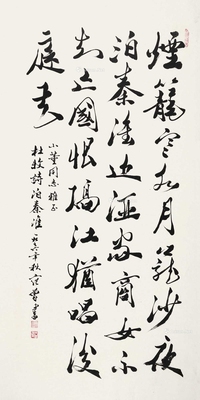 煙籠寒水月籠沙夜
泊秦淮近酒家商女不
知亡國恨隔江猶唱後
庭花
同志雅正
杜牧詩泊秦淮 年秋 書